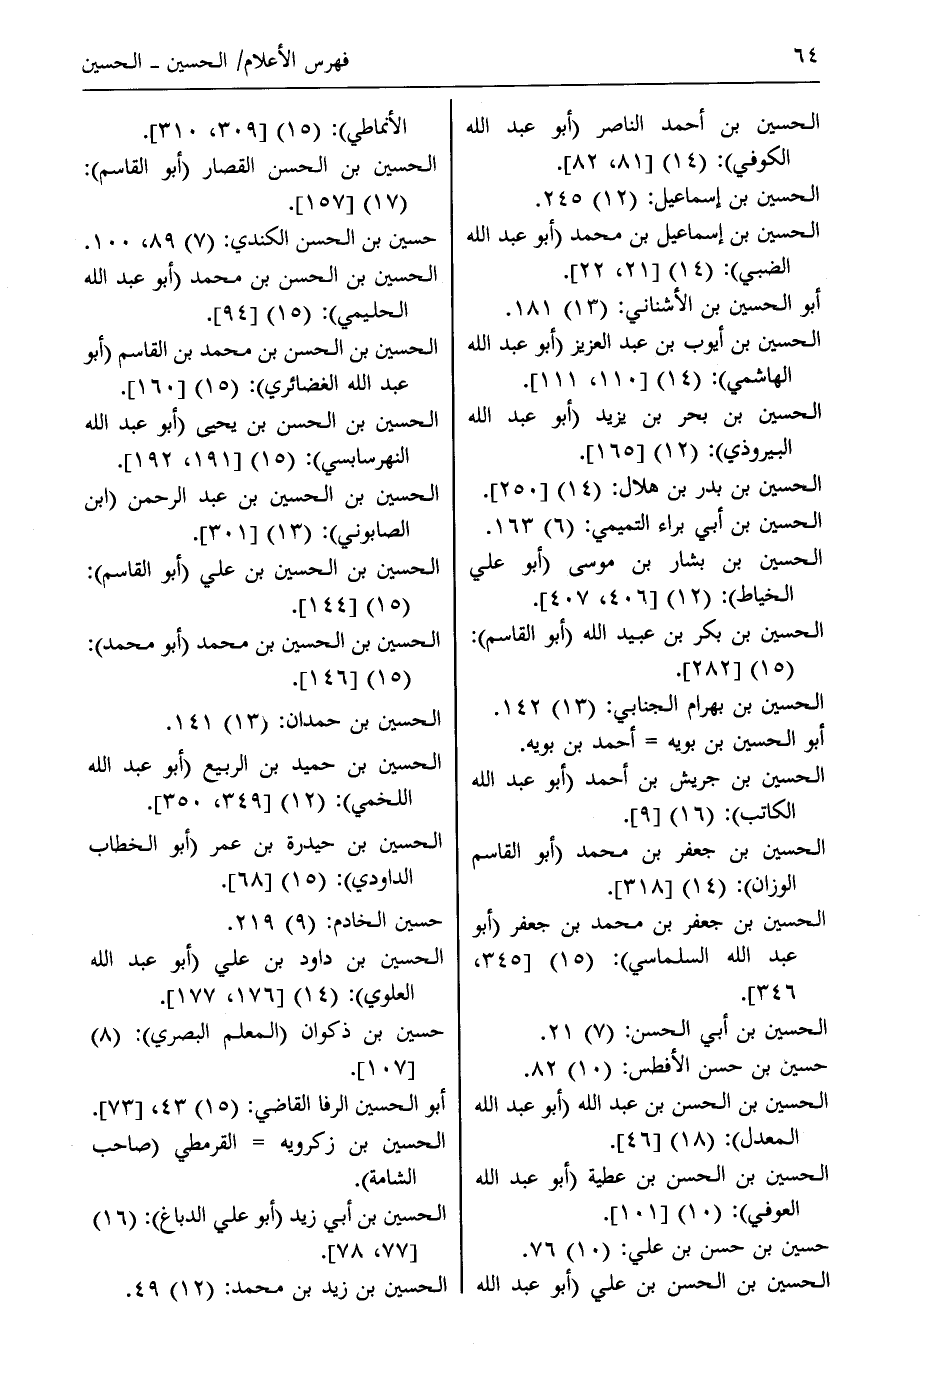 ٦٤
فهرس الأعلام/ الحسين ـ الحسين
الحسين بن أحمد الناصر (أبو عبد الله
الكوفي): (١٤) [٨١، ٨٢].
الحسين بن إسماعيل: (١٢) ٢٤٥.
الحسين بن إسماعيل بن محمد (أبو عبد الله
الضبي): (١٤) [٢١، ٢٢].
أبو الحسين بن الأشناني: (١٣) ١٨١.
الحسين بن أيوب بن عبد العزيز (أبو عبد الله
الهاشمي): (١٤) [١١٠، ١١١].
الحسين بن بحر بن يزيد (أبو عبد الله
البيروذي): (١٢) [١٦٥].
الحسين بن بدر بن هلال: (١٤) [٢٥٠].
الحسين بن أبي براء التميمي: (٦) ١٦٣.
الحسين بن بشار بن موسى (أبو علي
الخياط): (١٢) [٤٠٦، ٤٠٧].
الحسين بن بكر بن عبيد الله (أبو القاسم):
(١٥) [٢٨٢].
الحسين بن بهرام الجنابي: (١٣) ١٤٢.
أبو الحسين بن بويه = أحمد بن بويه.
الحسين بن جريش بن أحمد (أبو عبد الله
الكاتب): (١٦) [٩].
الحسين بن جعفر بن محمد (أبو القاسم
الوزان): (١٤) [٣١٨].
الحسين بن جعفر بن محمد بن جعفر (أبو
عبد الله السلماسي): (١٥) [٣٤٥،
٣٤٦].
الحسين بن أبي الحسن: (٧) ٢١.
حسين بن حسن الأفطس: (١٠) ٨٢.
الحسين بن الحسن بن عبد الله (أبو عبد الله
المعدل): (١٨) [٤٦].
الحسين بن الحسن بن عطية (أبو عبد الله
العوفي): (١٠) [١٠١].
حسين بن حسن بن علي: (١٠) ٧٦.
الحسين بن الحسن بن علي (أبو عبد الله
الأنماطي): (١٥) [٣٠٩، ٣١٠].
الحسين بن الحسن القصار (أبو القاسم):
(١٧) [١٥٧].
حسين بن الحسن الكندي: (٧) ٨٩، ١٠٠.
الحسين بن الحسن بن محمد (أبو عبد الله
الحليمي): (١٥) [٩٤].
الحسين بن الحسن بن محمد بن القاسم (أبو
عبد الله الغضائري): (١٥) [١٦٠].
الحسين بن الحسن بن يحيى (أبو عبد الله
النهرسابسي): (١٥) [١٩١، ١٩٢].
الحسين بن الحسين بن عبد الرحمن (ابن
الصابوني): (١٣) [٣٠١].
الحسين بن الحسين بن علي (أبو القاسم):
(١٥) [١٤٤].
الحسين بن الحسين بن محمد (أبو محمد):
(١٥) [١٤٦].
الحسين بن حمدان: (١٣) ١٤١.
الحسين بن حميد بن الربيع (أبو عبد الله
اللخمي): (١٢) [٣٤٩، ٣٥٠].
الحسين بن حيدرة بن عمر (أبو الخطاب
الداودي): (١٥) [٦٨].
حسين الخادم: (٩) ٢١٩.
الحسين بن داود بن علي (أبو عبد الله
العلوي): (١٤) [١٧٦، ١٧٧].
حسين بن ذكوان (المعلم البصري): (٨)
[١٠٧].
أبو الحسين الرفا القاضي: (١٥) ٤٣، [٧٣].
الحسين بن زكرويه = القرمطي (صاحب
الشامة).
الحسين بن أبي زيد (أبو علي الدباغ): (١٦)
[٧٧، ٧٨].
الحسين بن زيد بن محمد: (١٢) ٤٩.